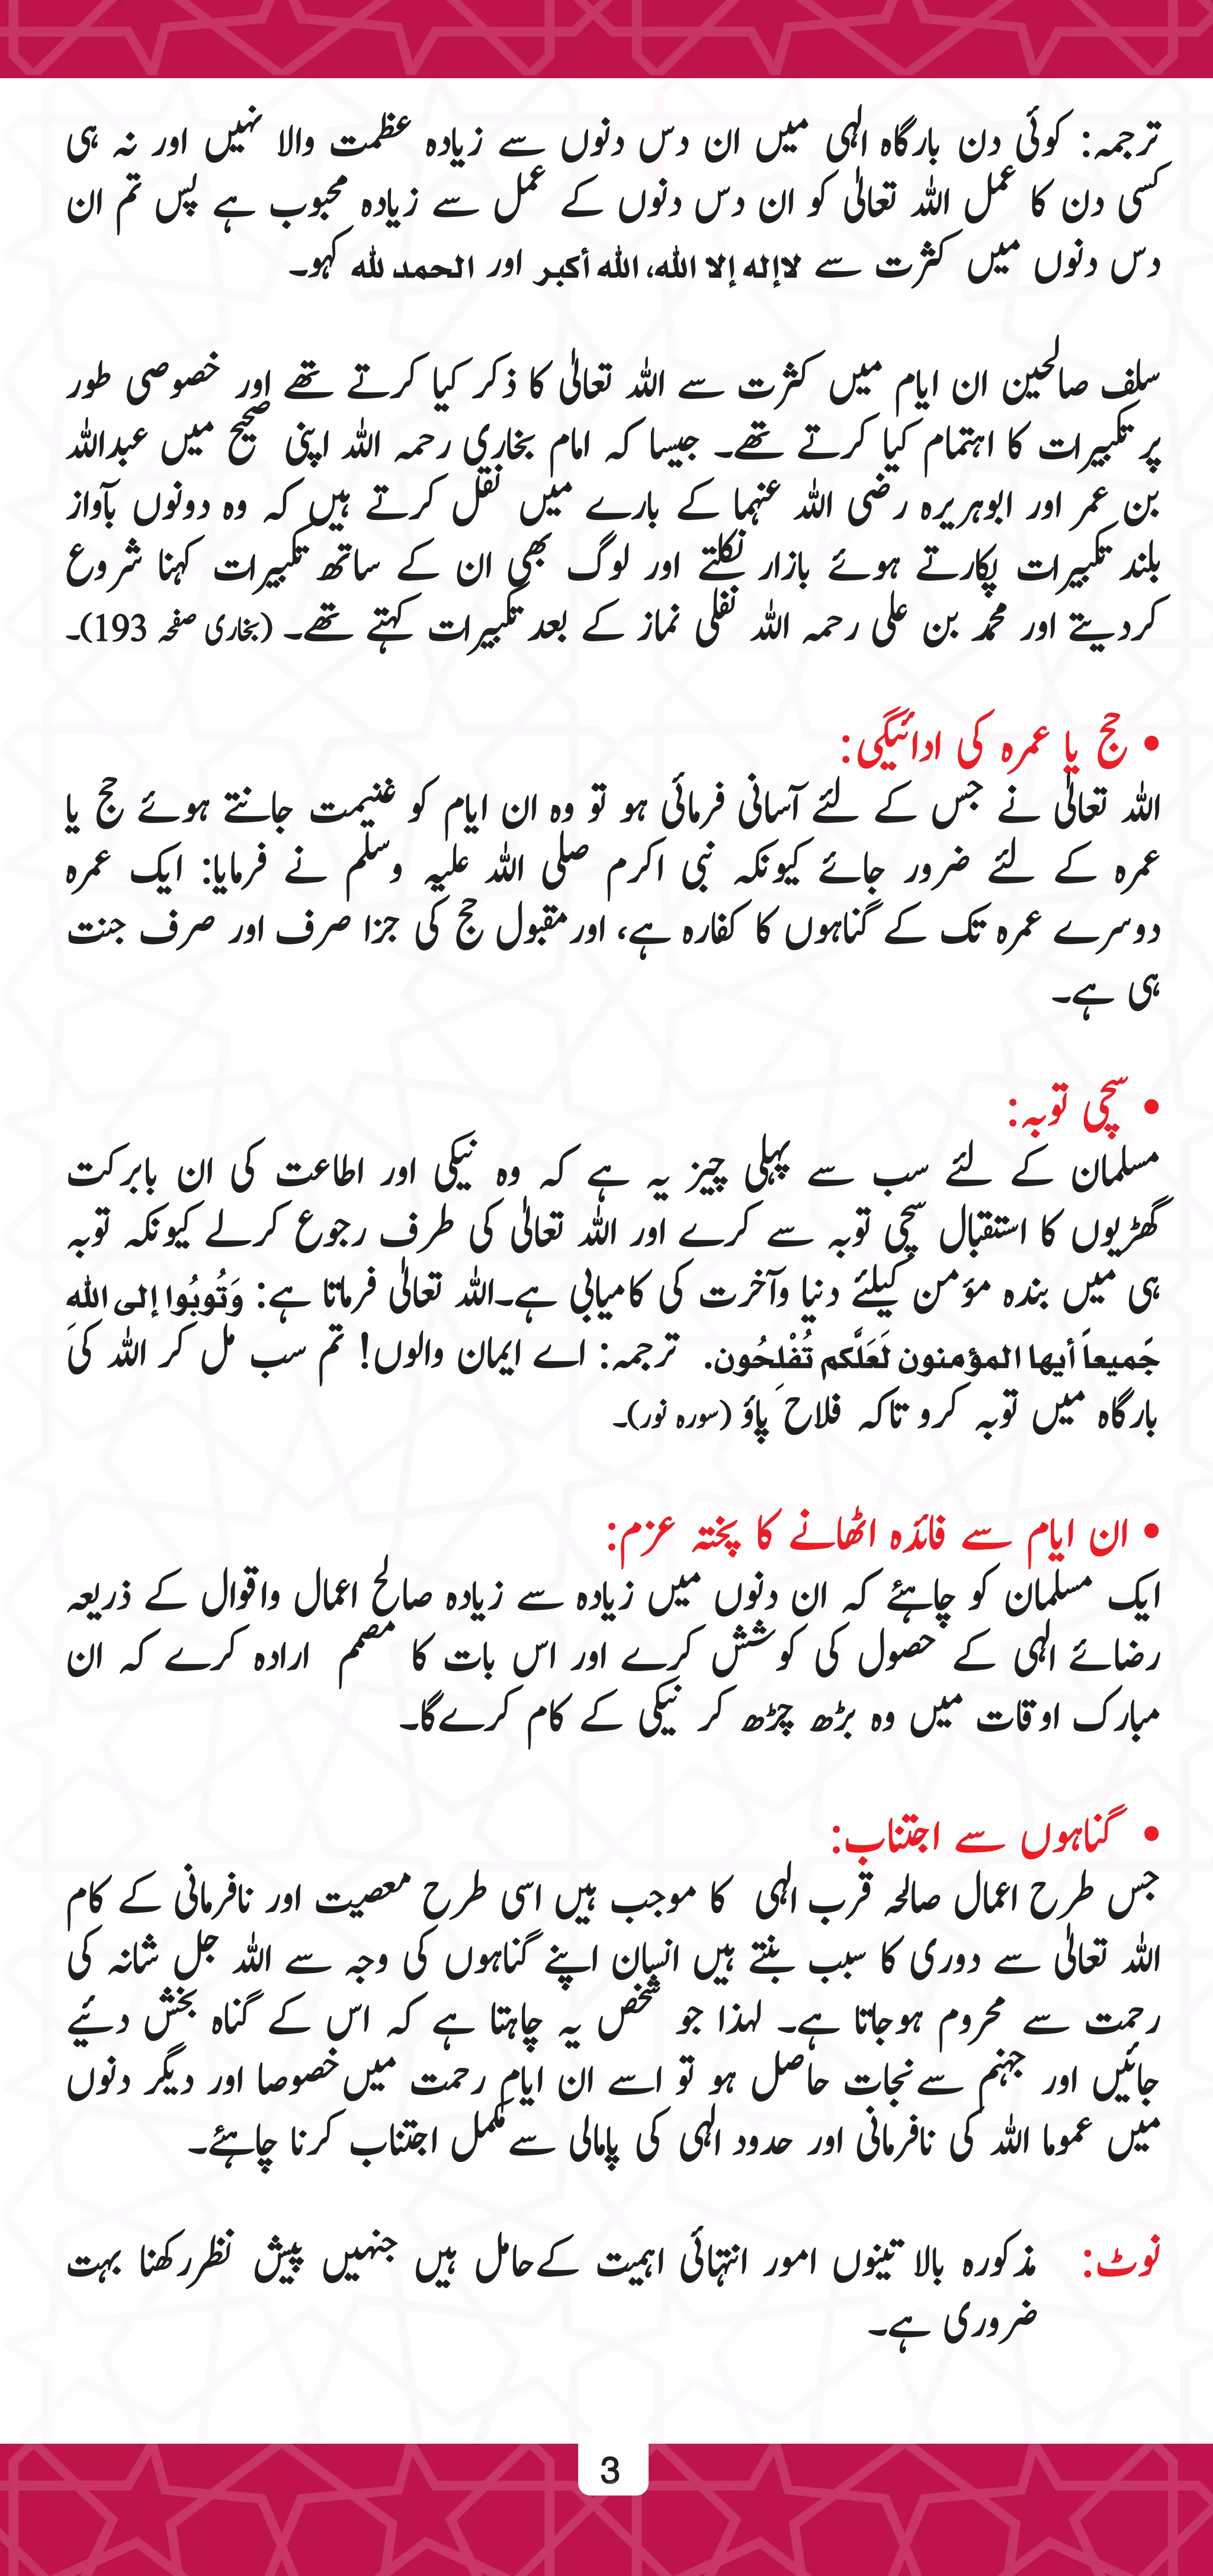 ترجمہ: کوئی دن بارگاہ الٰہی میں ان دس دنوں سے زیادہ عظمت والا نہیں اور نہ ہی
کسی دن کا عمل اللہ تعالیٰ کو ان دس دنوں کے عمل سے زیادہ محبوب ہے پس تم ان
دس دنوں میں کثرت سے لاإله إلا الله، الله أكبر اور الحمد لله کہو۔
سلف صالحین ان ایام میں کثرت سے اللہ تعالیٰ کا ذکر کیا کرتے تھے اور خصوصی طور
پر تکبیرات کا اہتمام کیا کرتے تھے۔ جیسا کہ امام بخاری رحمہ اللہ اپنی صحیح میں عبداللہ
بن عمر اور ابوہریرہ رضی اللہ عنہما کے بارے میں نقل کرتے ہیں کہ وہ دونوں بآواز
بلند تکبیرات پکارتے ہوئے بازار نکلتے اور لوگ بھی ان کے ساتھ تکبیرات کہنا شروع
کردیتے اور محمد بن علی رحمہ اللہ نفلی نماز کے بعد تکبیرات کہتے تھے۔ (بخاری صفحہ 193)۔
• حج یا عمرہ کی ادائیگی:
اللہ تعالیٰ نے جس کے لئے آسانی فرمائی ہو تو وہ ان ایام کو غنیمت جانتے ہوئے حج یا
عمرہ کے لئے ضرور جائے کیونکہ نبی اکرم صلی اللہ علیہ وسلم نے فرمایا: ایک عمرہ
دوسرے عمرہ تک کے گناہوں کا کفارہ ہے، اورمقبول حج کی جزا صرف اور صرف جنت
ہی ہے۔
• سچی توبہ:
مسلمان کے لئے سب سے پہلی چیز یہ ہے کہ وہ نیکی اور اطاعت کی ان بابرکت
گھڑیوں کا استقبال سچی توبہ سے کرے اور اللہ تعالیٰ کی طرف رجوع کرلے کیونکہ توبہ
ہی میں بندہ مؤمن کیلئے دنیا وآخرت کی کامیابی ہے۔اللہ تعالیٰ فرماتا ہے: وَتُوبُوا إلى اللهِ
جَميعاً أيها المؤمنون لَعَلَّكم تُفْلِحُون. ترجمہ: اے ایمان والوں! تم سب مل کر اللہ کی
بارگاہ میں توبہ کرو تاکہ فلاح پاؤ (سورہ نور)۔
• ان ایام سے فائدہ اٹھانے کا پختہ عزم:
ایک مسلمان کو چاہئے کہ ان دنوں میں زیادہ سے زیادہ صالح اعمال واقوال کے ذریعہ
رضائے الٰہی کے حصول کی کوشش کرے اور اس بات کا مصمم ارادہ کرے کہ ان
مبارک اوقات میں وہ بڑھ چڑھ کر نیکی کے کام کرےگا۔
• گناہوں سے اجتناب:
جس طرح اعمال صالحہ قرب الٰہی کا موجب ہیں اسی طرح معصیت اور نافرمانی کے کام
اللہ تعالیٰ سے دوری کا سبب بنتے ہیں انسان اپنے گناہوں کی وجہ سے اللہ جل شانہ کی
رحمت سے محروم ہوجاتا ہے۔ لہذا جو شخص یہ چاہتا ہے کہ اس کے گناہ بخش دئیے
جائیں اور جہنم سےنجات حاصل ہو تو اسے ان ایامِ رحمت میں خصوصا اور دیگر دنوں
میں عموما اللہ کی نافرمانی اور حدود الٰہی کی پامالی سے مکمل اجتناب کرنا چاہئے۔
نوٹ: مذکورہ بالا تینوں امور انتہائی اہمیت کےحامل ہیں جنہیں پیش نظررکھنا بہت
ضروری ہے۔
3